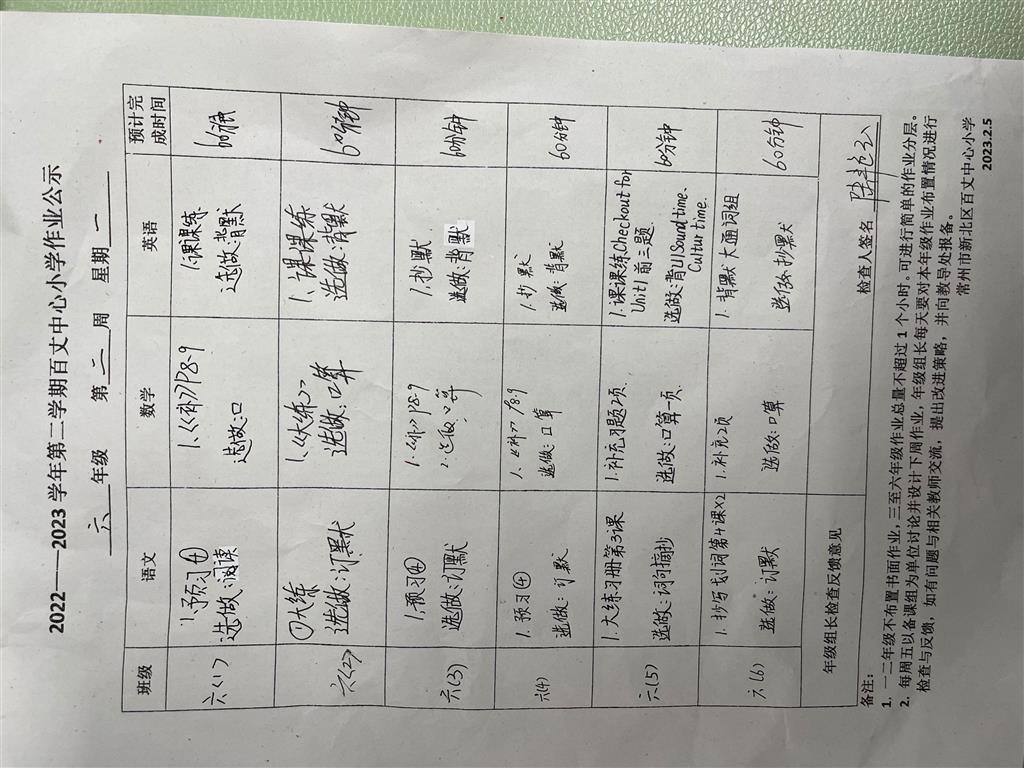 2022——2023 学年第二学期百丈中心小学作业公示
六 年级 第 二 周 星期 一
班级 语文 数学 英语 预计完成时间
六(1)
1.预习④
选做:阅读
1.《补》P8-9
选做:口
1.课课练
选做:背默
60分钟
六(2)
①大练
选做:订默
1.《大练》
选做:口算
1.课课练
选做:背默
60分钟
六(3)
1.预习④
选做:订默
1.《补》P8-9
2.选做:口算
1.抄默
选做:背默
60分钟
六(4)
1.预习④
选做:订默
1.《补》P8.9
选做:口算
1.抄默
选做:背默
60分钟
六(5)
1.大练习册第3课
选做:词句摘抄
1.补充习题2页
选做:口算1页
1.课课练Checkout for
Unit1前三题.
选做:背U1Soundtime.
Culturtime.
60分钟
六(6)
1.抄写划词第4课×2
选做:订默
1.补充2页
选做:口算
1.背默大通词组
选做:抄默
60分钟
年级组长检查反馈意见
检查人签名
备注:
1. 一二年级不布置书面作业,三至六年级作业总量不超过 1 个小时。可进行简单的作业分层。
2. 每周五以备课组为单位讨论并设计下周作业,年级组长每天要对本年级作业布置情况进行
检查与反馈,如有问题与相关教师交流,提出改进策略,并向教导处报备。
常州市新北区百丈中心小学
2023.2.5